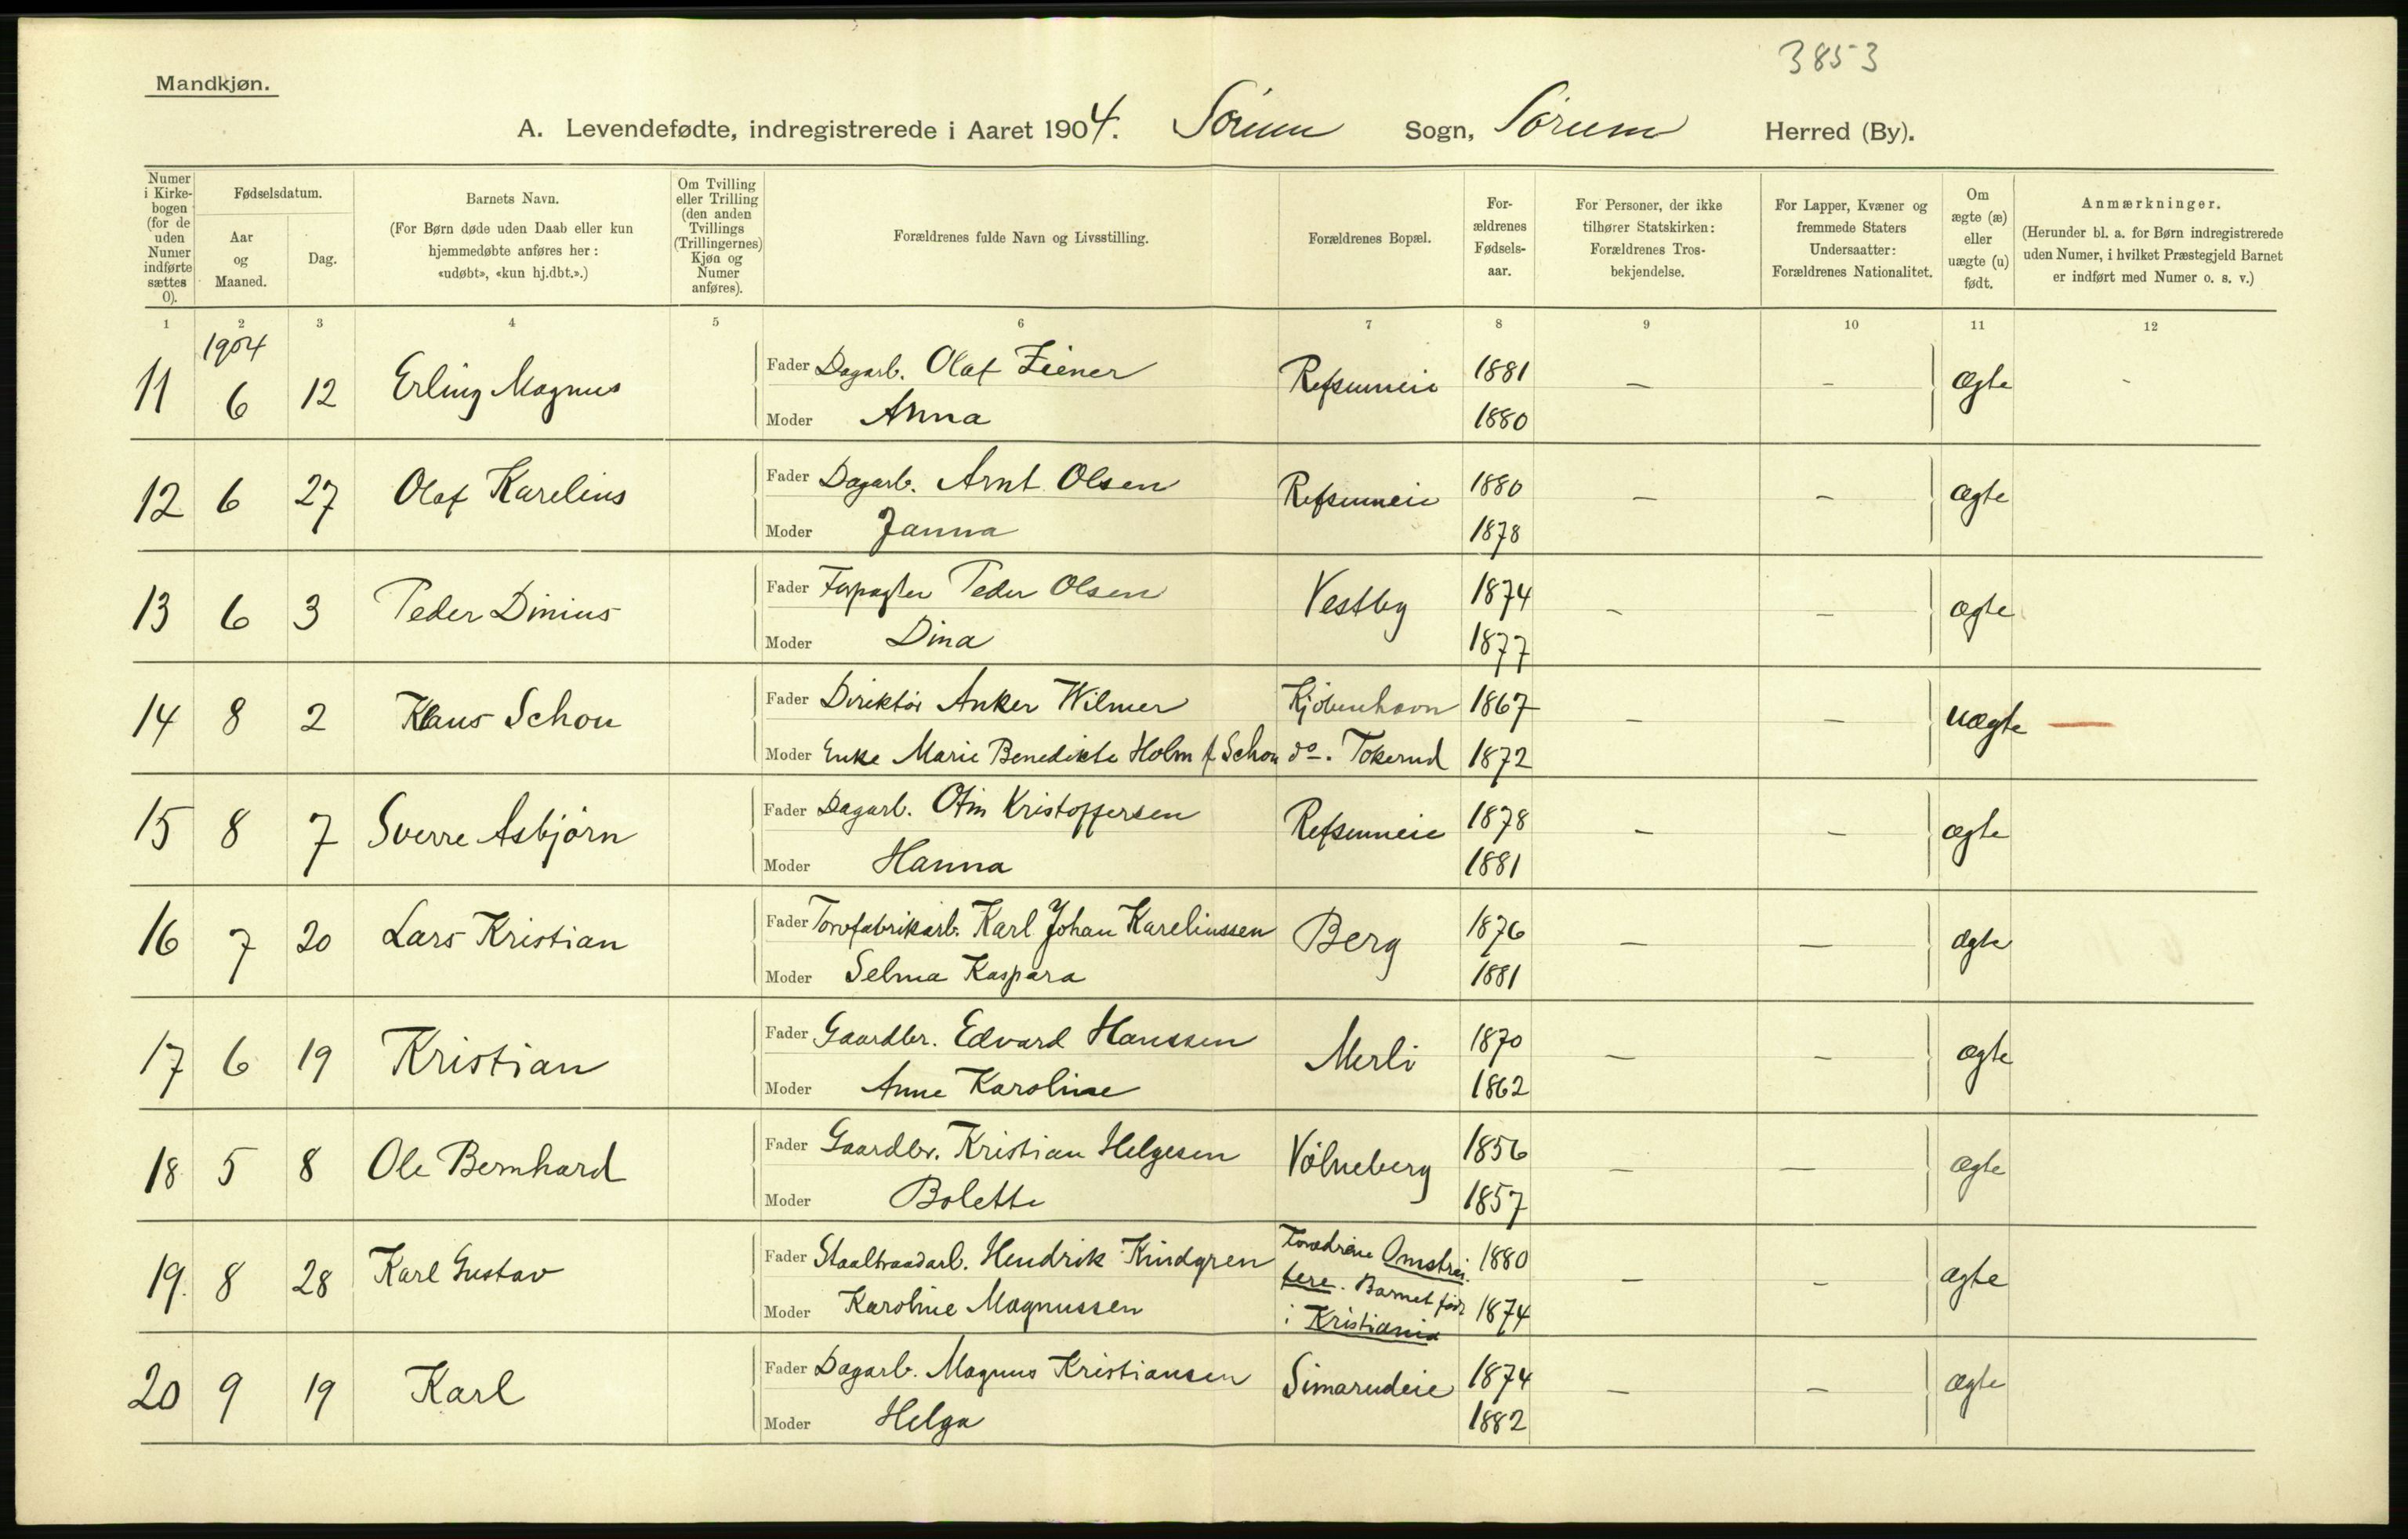 3853
Mandkjøn.
A. Levendefødte, indregistrerede i Aaret 1904. Sørum Sogn, Sørum Herred (By).
Numer i Kirkebogen (for de uden Numer indførte sættes 0).
Fødselsdatum.
Aar og Maaned.
Dag.
Barnets Navn.
(For Børn døde uden Daab eller kun hjemmedøbte anføres her: «udøbt», «kun hj.dbt.».)
Om Tvilling eller Trilling (den anden Tvillings (Trillingernes) Kjøn og Numer anføres).
Forældrenes fulde Navn og Livsstilling.
Forældrenes Bopæl.
Forældrenes Fødselsaar.
For Personer, der ikke tilhører Statskirken: Forældrenes Trosbekjendelse.
For Lapper, Kvæner og fremmede Staters Undersaatter: Forældrenes Nationalitet.
Om ægte (æ) eller uægte (u) født.
Anmærkninger.
(Herunder bl. a. for Børn indregistrerede uden Numer, i hvilket Præstegjeld Barnet er indført med Numer o. s. v.)
1 2 3 4 5 6 7 8 9 10 11 12
1904
11 6 12 Erling Magnus Fader Dagarb. Olaf Ziener Refsumeie 1881 – – Ægte -
Moder Anna 1880
12 6 27 Olaf Karelius Fader Dagarb. Arnt Olsen Refsumeie 1880 – – ægte
Moder Janna 1878
13 6 3 Peder Dinius Fader Forpagter Peder Olsen Vestby 1874 – – ægte
Moder Dina 1877
14 8 2 Klaus Schou Fader Direktør Anker Wilmer Kjøbenhavn 1867 – – uægte —
Moder Enke Marie Benedikte Holm f. Schou do. Tokerud 1872
15 8 7 Sverre Asbjørn Fader Dagarb. Otin Kristoffersen Refsumeie 1878 – – ægte
Moder Hanna 1881
16 7 20 Lars Kristian Fader Torvfabrikarb. Karl Johan Kareliussen Berg 1876 – – ægte
Moder Selma Kaspara 1881
17 6 19 Kristian Fader Gaardbr. Edvard Hanssen Merli 1870 – – ægte
Moder Anne Karoline 1862
18 5 8 Ole Bernhard Fader Gaardbr. Kristian Helgesen Vølneberg 1856 – – ægte
Moder Bolette 1857
19. 8 28 Karl Gustav Fader Staaltraadarb. Hendrik Kindgren Omstrei- 1880 – – ægte
fere. Barnet født
Moder Karoline Magnussen 1874
i Kristiania
20 9 19 Karl Fader Dagarb. Magnus Kristiansen Simarudeie 1874 – – ægte
Moder Helga 1882